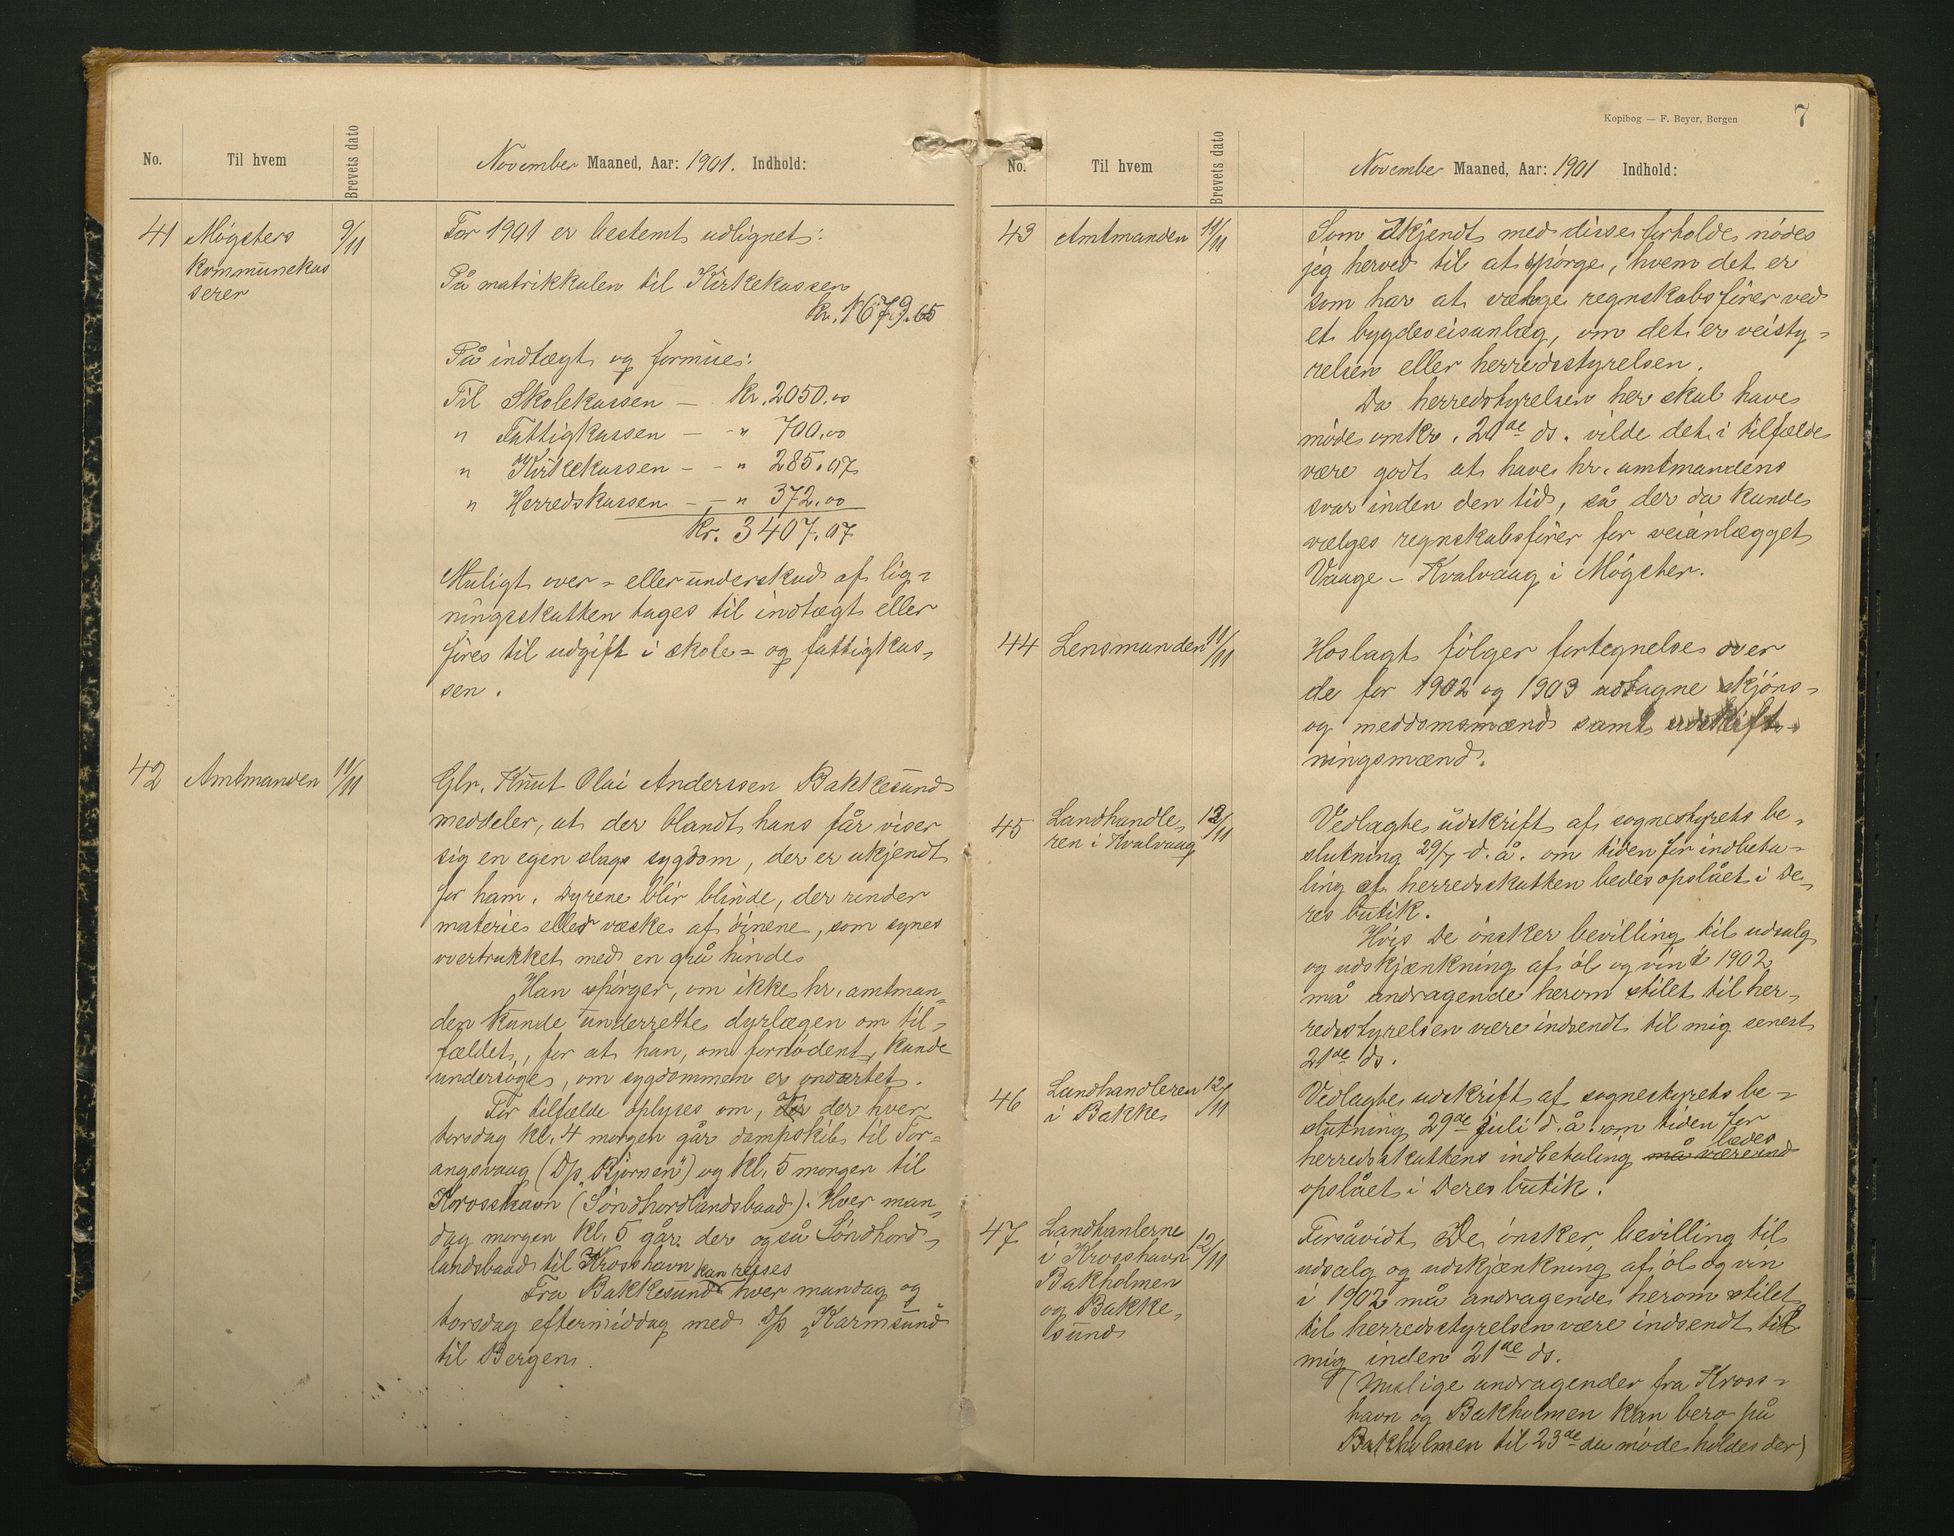 No.
Til hvem
Brevets dato
November Maaned, Aar: 1901. Indhold:
41
Møgsters
kommunekas
serer
9/11
For 1901 er bestemt udlignet:
På matrikkulen til Kirkekassen
kr. 1679.65
På indtægt og formue:
Til Skolekassen — kr. 2050.00
" Fattigkassen — - " 700.00
" Kirkekassen - - " 285.07
" Herredskassen - - " 372.00
kr. 3407.07
Muligt over- eller underskud af lig-
ningsskatten tages til indtægt eller
føres til udgift i skole- og fattigkas-
sen.
42
Amtmanden
11/11
Glr. Knut Olai Anderssen Bakkesund
meddeler, at der blandt hans får viser
sig en egen slags sygdom, der er ukjendt
for ham. Dyrene blir blinde, der rinder
materie eller væske af øinene, som synes
overtrukket med en grå hinde
Han spørger, om ikke hr. amtman-
den kunde underrette dyrlægen om til-
fældet, for at han, om fornødent, kunde
undersøge, om sygdommen er ondartet.
For tilfælde oplyses om, at der hver
torsdag kl. 4 morgen går dampskib til For-
angsvaag (D/s "Bjørnen") og kl. 5 morgen til
Krosshavn (Søndhordlandsbaad). Hver man-
dag morgen kl. 5 går der også Søndhord-
landsbaad til Krosshavn
kan reises
Fra Bakkesund hver mandag og
torsdag eftermiddag med D/s "Karmsund"
til Bergen.
Kopibog — F. Beyer, Bergen
7
No.
Til hvem
Brevets dato
November Maaned, Aar: 1901 Indhold:
43
Amtmanden
11/11
Som ukjendt med disse forholde nødes
jeg herved til at spørge, hvem det er
som har at vælge regnskabsfører ved
et bygdeveisanlæg, om det er veisty-
relsen eller herredsstyrelsen.
Da herredstyrelsen her skal have
møde omkr. 20de ds. vilde det i tilfælde
være godt at have hr. amtmandens
svar inden den tid, så der da kunde
vælges regnskabsfører for veianlægget
Vaage - Kvalvaag i Møgster.
44
Lensmanden
11/11
Hoslagt følger fortegnelse over
de for 1902 og 1903 udtagne skjøns-
og meddomsmænd samt udskift-
ningsmænd.
45
Landhandle-
ren i Kvalvaag
12/11
Vedlagte udskrift af sognestyrets be-
slutning 29/7 d. å. om tiden for indbeta-
ling af herredsskatten bedes opslået i De-
res butik.
Hvis De ønsker bevilling til udsalg
og udskjænkning af øl og vin i 1902
må andragende herom stilet til her-
redsstyrelsen være indsendt til mig senest
21de ds.
46
Landhandleren
i Bakke
12/11
Vedlagte udskrift af sognestyrets be-
slutning 29de juli d. å. om tiden for
herredsskattens indbetaling må være ind bedes
opslået i Deres butik.
47
Landhanlerne
i Krosshavn
Bakholmen
og Bakke-
sund
12/11
Forsåvidt De ønsker bevilling til
udsalg og udskjænkning af øl og vin
i 1902 må andragende herom stilet
til herredsstyrelsen være indsendt til
mig inden 21de ds.
(Mulige andragender fra Kross-
havn og Bakholmen kan bero på
Bakholmen til 23de da møde holdes der)